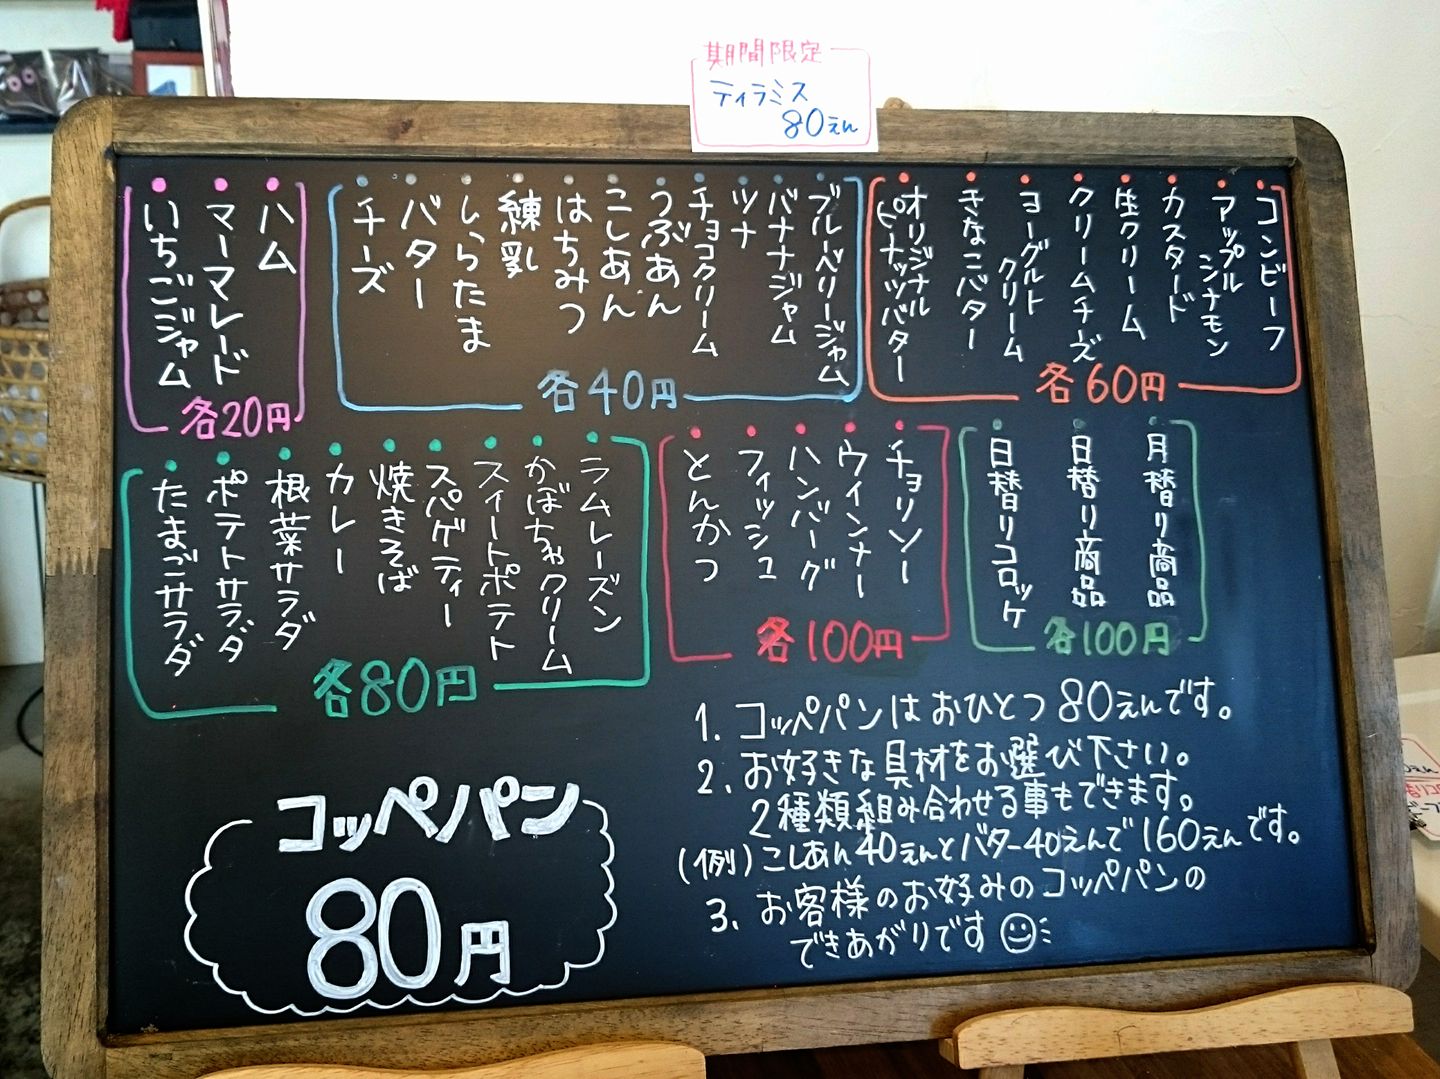 期間限定
ティラミス
80えん
コンビーフ
アップル
シナモン
カスタード
生クリーム
クリームチーズ
ヨーグルト
クリーム
きなこバター
オリジナル
ピーナッツバター
各60円
ブルーベリージャム
バナナジャム
ツナ
チョコクリーム
つぶあん
こしあん
はちみつ
練乳
しらたま
バター
チーズ
各40円
ハム
マーマレード
いちごジャム
各20円
月替り商品
日替り商品
日替りコロッケ
各100円
チョリソー
ウインナー
ハンバーグ
フィッシュ
とんかつ
各100円
ラムレーズン
かぼちゃクリーム
スイートポテト
スパゲティー
焼きそば
カレー
根菜サラダ
ポテトサラダ
たまごサラダ
各80円
コッペパン
80円
1. コッペパンはおひとつ80えんです。
2. お好きな具材をお選び下さい。
2種類組み合わせる事もできます。
(例)こしあん40えんとバター40えんで160えんです。
3. お客様のお好みのコッペパンの
できあがりです